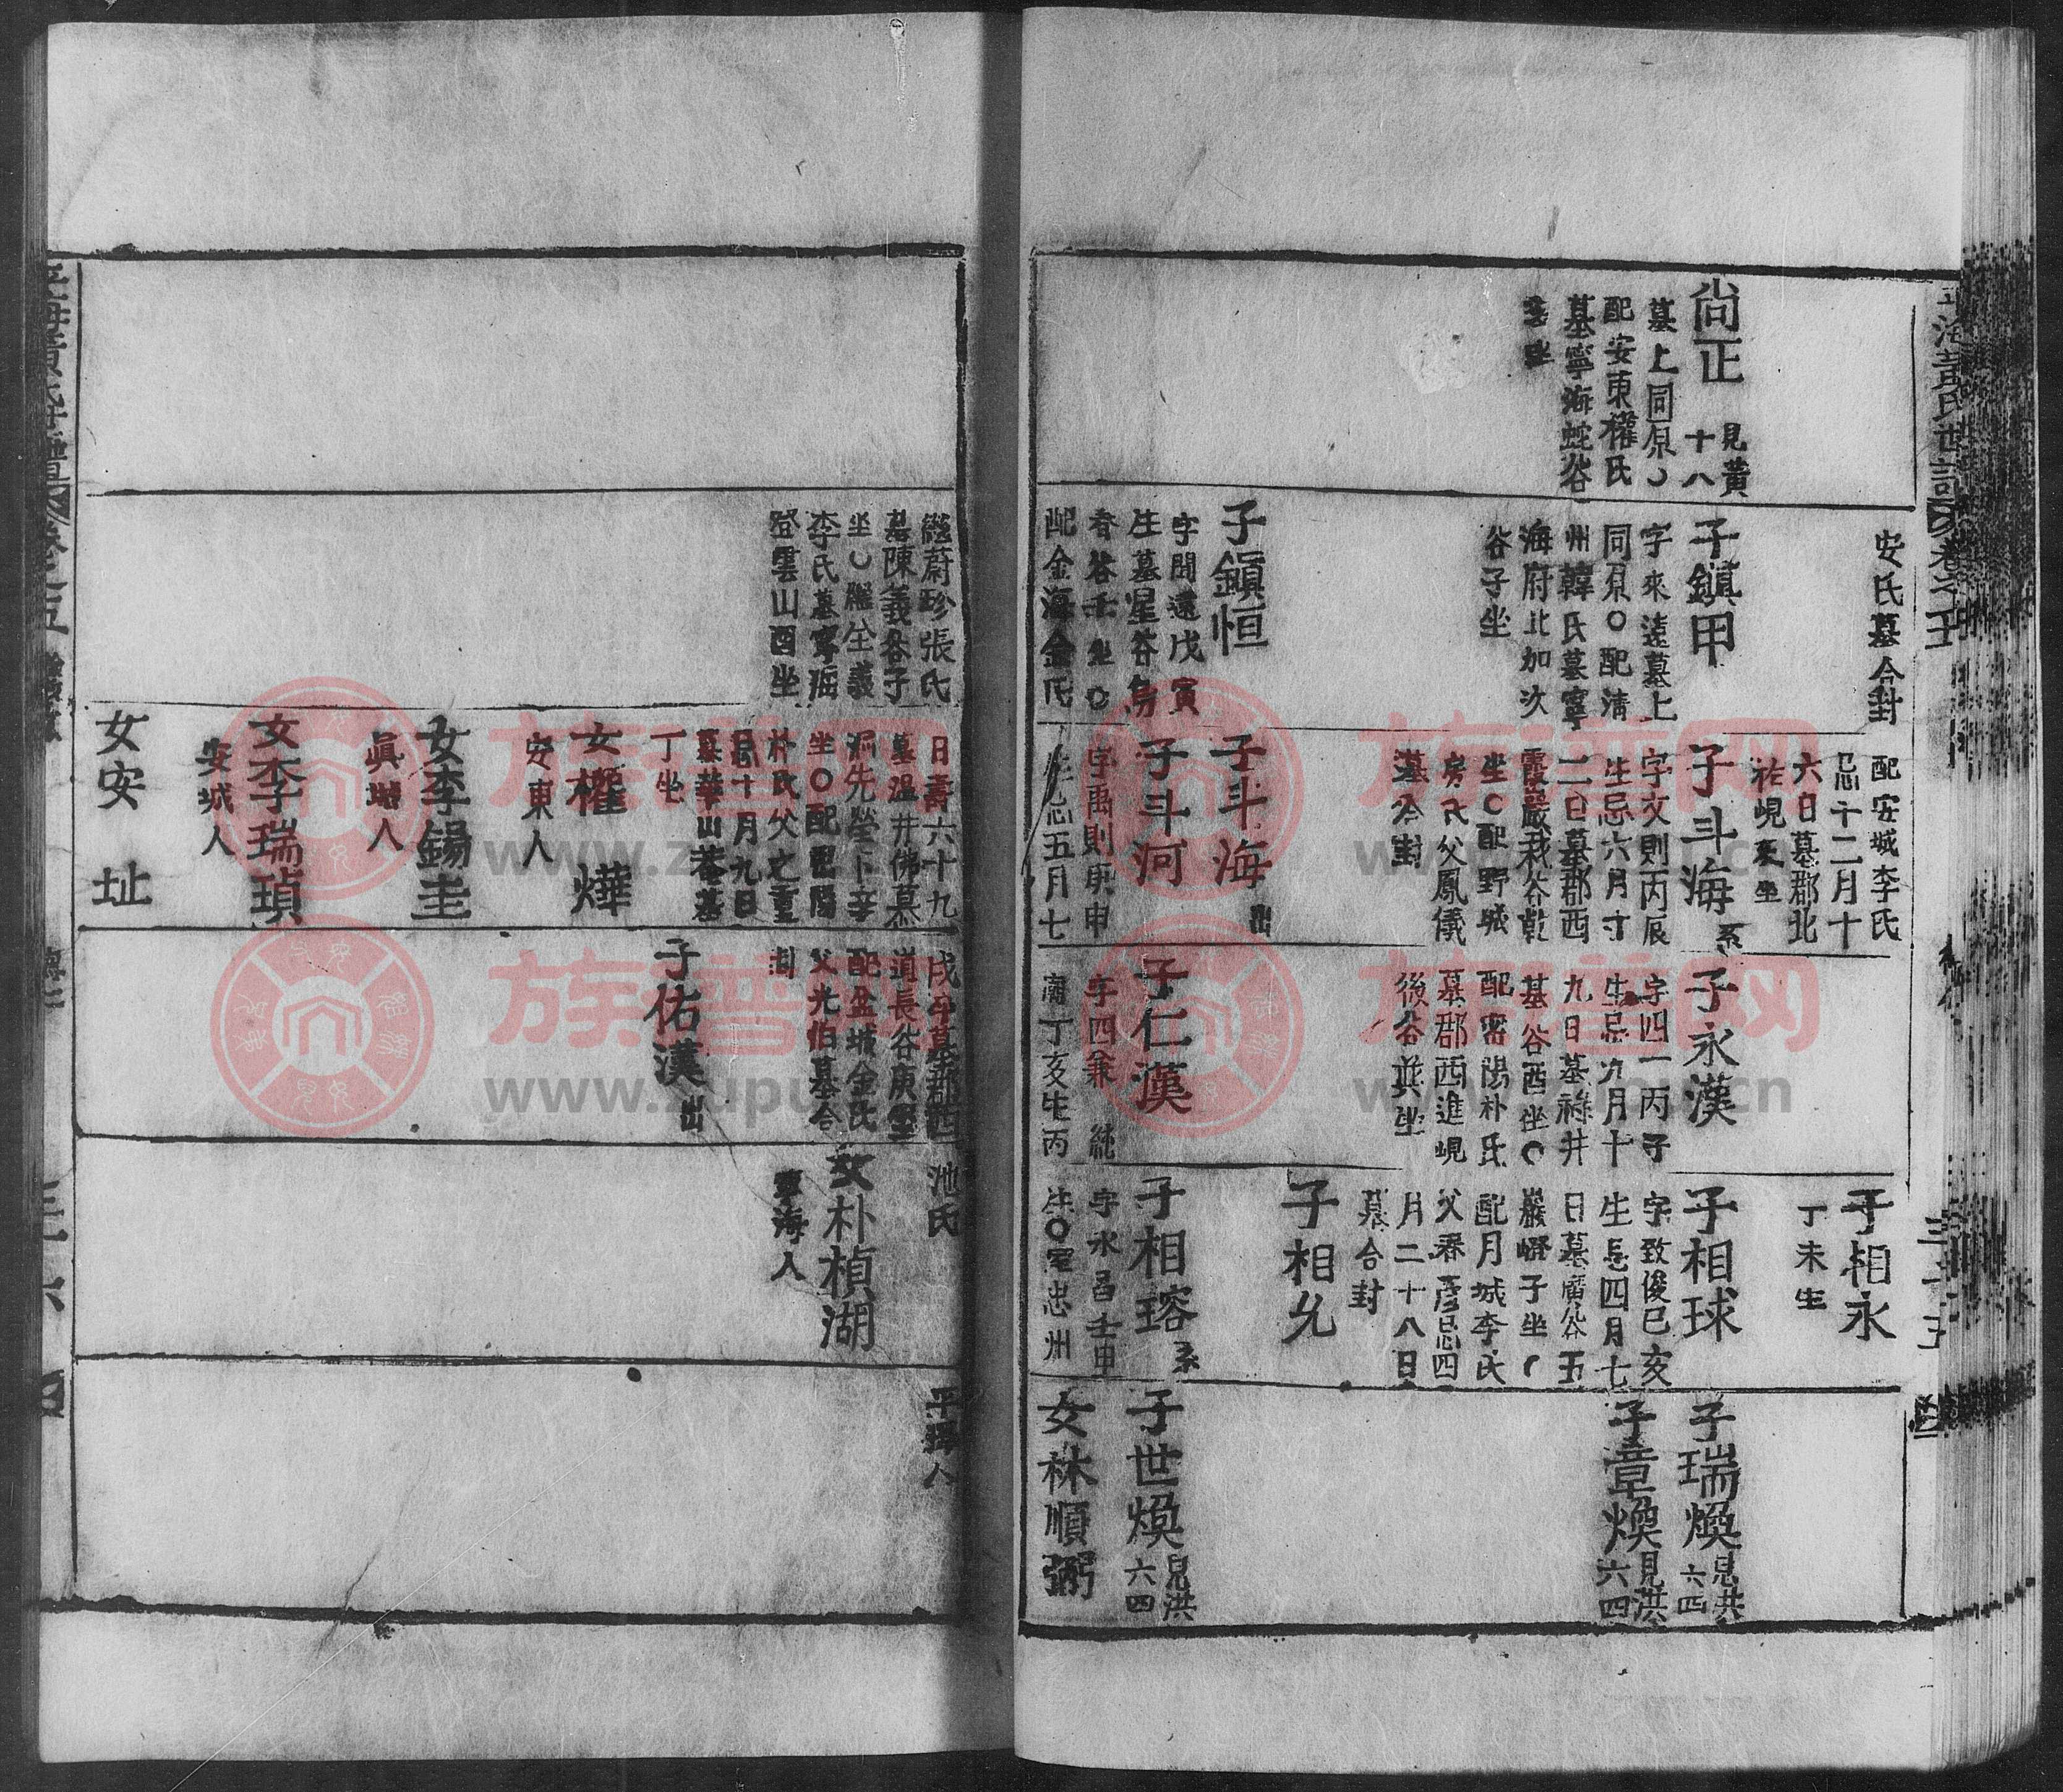 平海黃氏世譜卷之五
尙正
見黃
十八
墓上同原○
配安東權氏
墓寧海蛇谷
安氏墓合封
子鎭甲
字來遠墓上
同原○配淸
州韓氏墓寧
海府北加次
谷子坐
子鎭恒
字聞遠戊寅
生墓星谷
春谷壬坐○
配金海金氏
配安城李氏
忌十二月十
六日墓郡北
子斗海
系
字文則丙辰
生忌六月
二日墓郡西
霞嚴我谷乾
坐○配野城
父鳳儀
墓合封
子斗海
出
子斗河
字禹則庚申
生忌五月七
子永漢
字四一丙子
生忌九月十
九日墓祿井
墓谷酉坐○
配密陽朴氏
墓郡西進峴
後谷並坐
子仁漢
字四兼
丁亥生丙
子相永
丁未生
子相球
字致俊己亥
生忌四月七
日墓廣谷五
巖嶝子坐○
配月城李氏
父春彦忌四
月二十八日
墓合封
子相允
子相瑢
系
字永昌壬申
生○室忠州
子瑞煥
見洪
六四
子章煥
見洪
六四
子世煥
見洪
六四
女林順弼
繼蔚珍張氏
墓陳義谷子
坐○繼全義
李氏墓寧海
登雲山酉坐
日壽六十九
墓溫井佛
先塋卜辛
坐○配密陽
朴氏父之重
忌十月九日
墓華山巷墓
丁坐
女權燁
安東人
女李錫圭
眞城人
女李瑞瑱
安城人
女安址
戌 墓郡西
道長谷庚坐
配盆城金氏
父光伯墓合
封
子佑漢
出
池氏
女朴楨湖
寧海人
平澤人